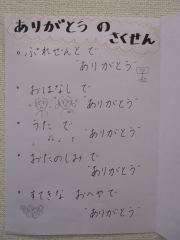 ありがとう の
さくせん
。ぷれぜんと で
"ありがとう"
・おはなし で
"ありがとう"
・うた で
"ありがとう"
・おたのしみ で
"ありがとう"
・すてきな おへや で
"ありがとう"